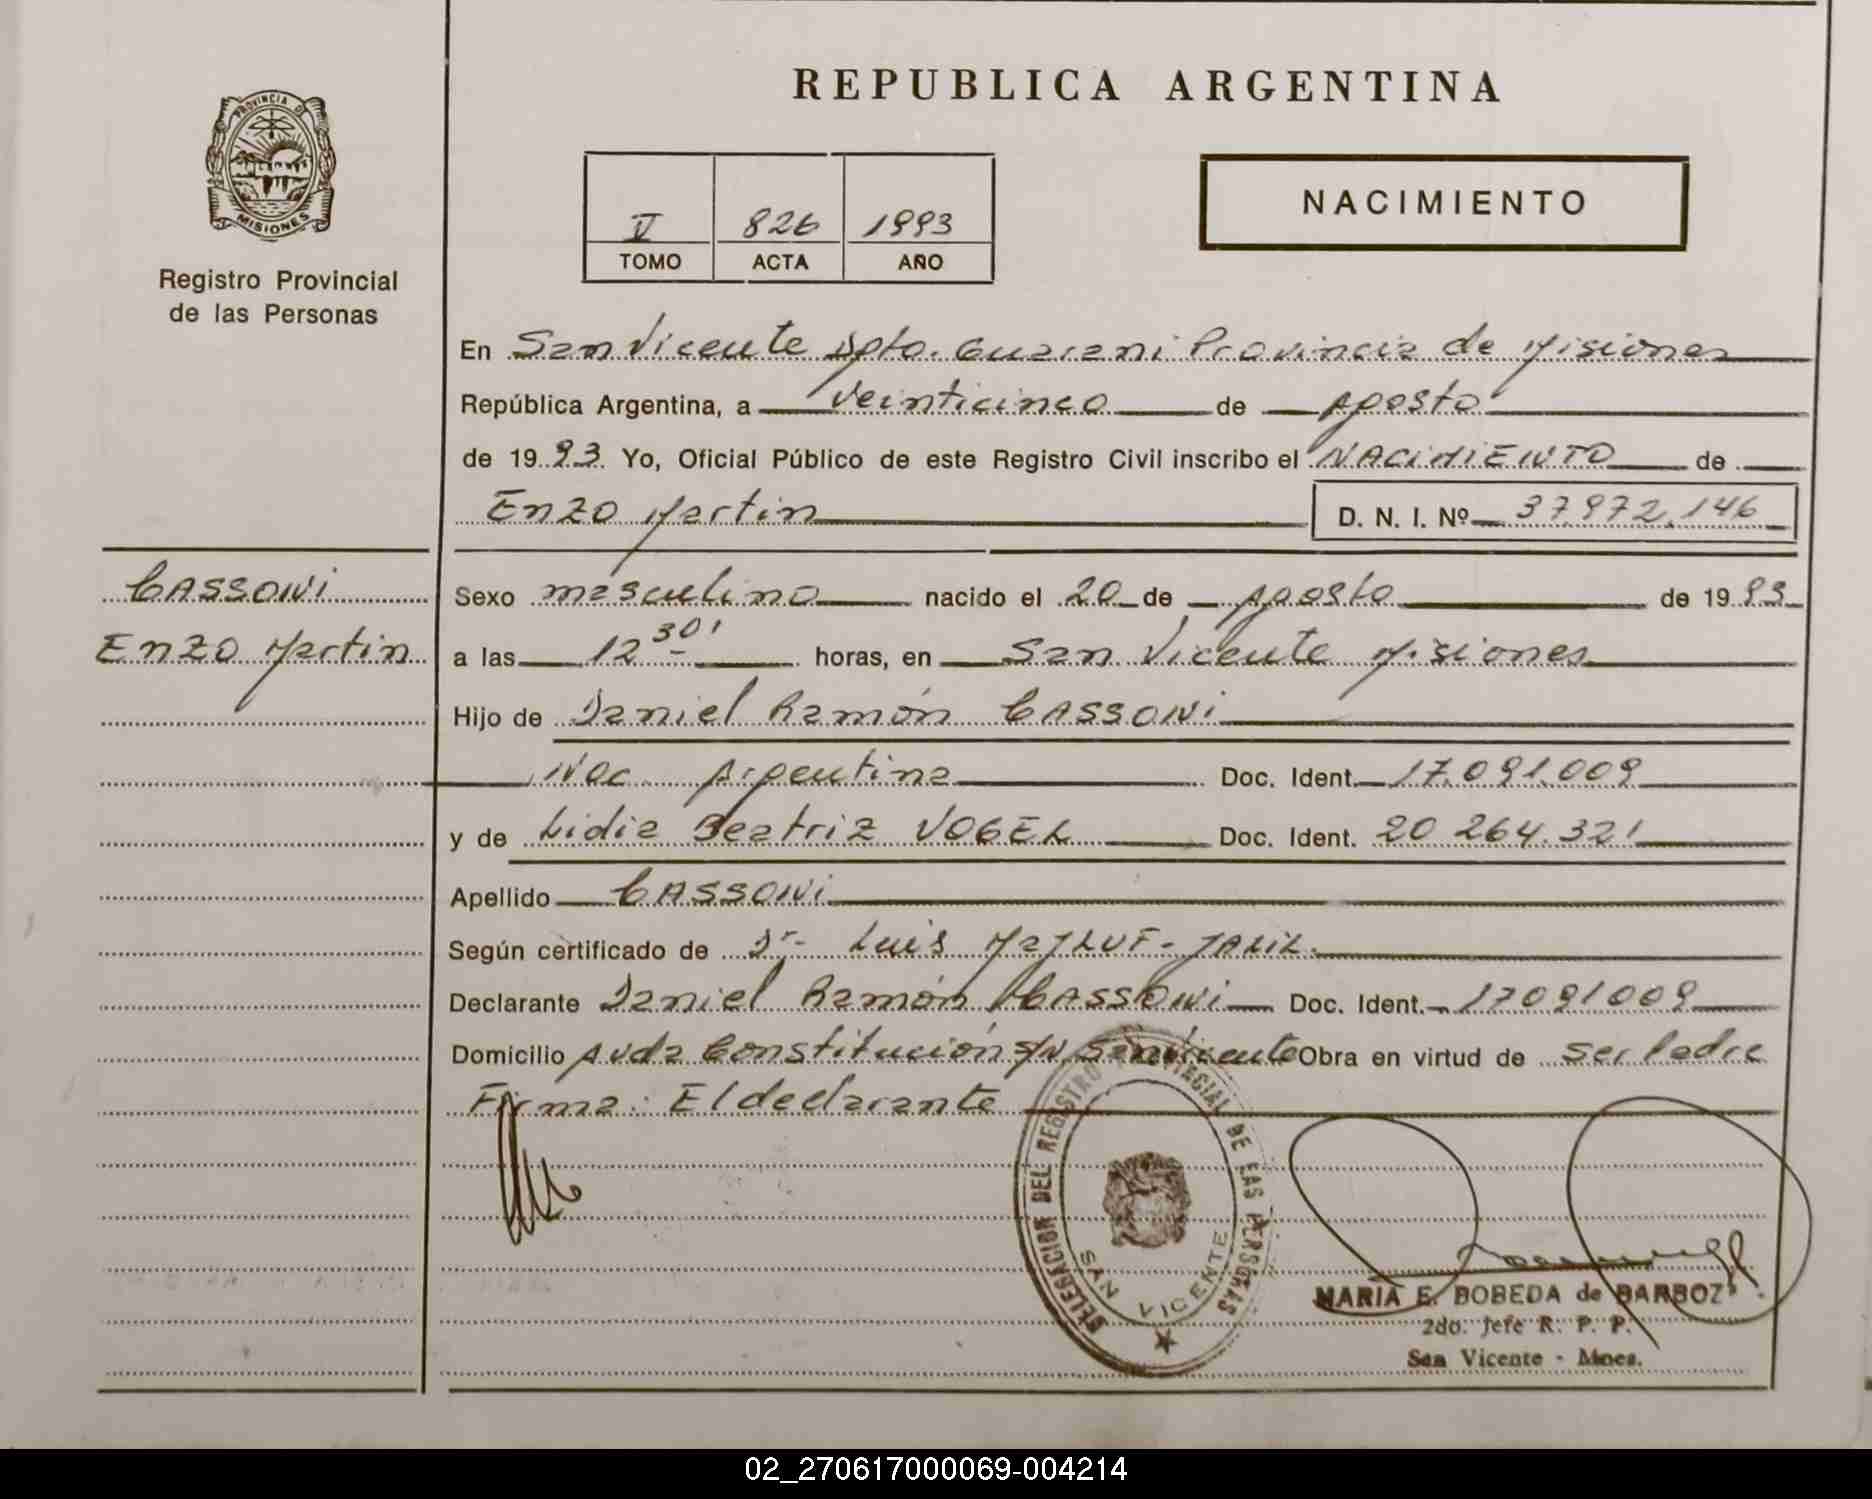 REPUBLICA ARGENTINA
PROVINCIA DE
MISIONES
Registro Provincial
de las Personas
V 826 1993
TOMO ACTA AÑO
NACIMIENTO
En San Vicente Dpto. Guarani Provincia de Misiones
República Argentina, a veinticinco de Agosto
de 1993. Yo, Oficial Público de este Registro Civil inscribo el NACIMIENTO de
Enzo Martin D. N. I. Nº 37.972.146
CASSONI
Enzo Martin
Sexo masculino nacido el 20 de Agosto de 1993
a las 12 30' horas, en San Vicente Misiones
Hijo de Daniel Ramón CASSONI
Nac. Argentina Doc. Ident. 17.091.009
y de Lidia Beatriz VOGEL Doc. Ident. 20 264.321
Apellido CASSONI
Según certificado de Dr. Luis MAJLUF-JALIL.
Declarante Daniel Ramón CASSONI Doc. Ident. 17091009
Domicilio Avda Constitución S/N San Vicente Obra en virtud de ser Padre
Firma: El declarante
DELEGACION DEL REGISTRO PROVINCIAL DE LAS PERSONAS
SAN VICENTE
MARIA E. BOBEDA de BARBOZA
2do. Jefe R. P. P.
San Vicente - Mnes.
02_270617000069-004214